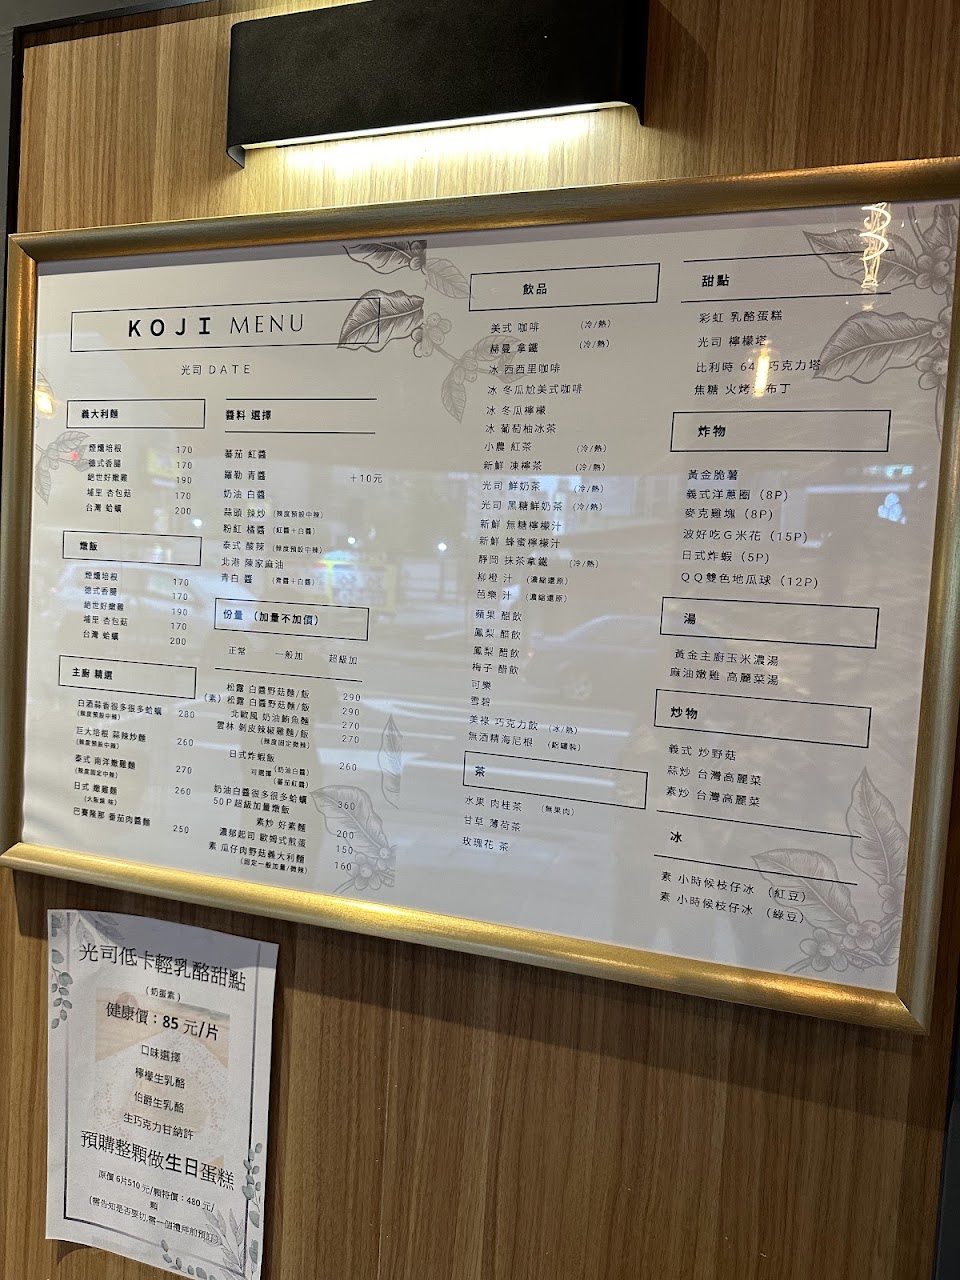 KOJI MENU
光司 DATE
義大利麵
煙燻培根 170
德式香腸 170
絕世好嫩雞 190
埔里 杏包菇 170
台灣 蛤蠣 200
燉飯
煙燻培根 170
德式香腸 170
絕世好嫩雞 190
埔里 杏包菇 170
台灣 蛤蠣 200
主廚 精選
白酒蒜香很多很多蛤蠣 280
(辣度預設中辣)
巨大培根 蒜辣炒麵 260
(辣度預設中辣)
泰式 南洋嫩雞麵 270
(辣度固定中辣)
日式 嫩雞麵 260
巴賽隆那 番茄肉醬麵 250
醬料 選擇
蕃茄 紅醬
羅勒 青醬 +10元
奶油 白醬
蒜頭 辣炒 (辣度預設中辣)
粉紅 橘醬 (紅醬+白醬)
泰式 酸辣 (辣度預設中辣)
北港 陳家麻油
青白 醬 (青醬+白醬)
份量 (加量不加價)
正常 一般加 超級加
松露 白醬野菇麵/飯 290
(素) 松露 白醬野菇麵/飯 290
北歐風 奶油鮪魚麵 270
雲林 剝皮辣椒雞麵/飯 270
(辣度固定微辣)
日式炸蝦飯 260
可選擇 (奶油白醬)
(蕃茄紅醬)
奶油白醬很多很多蛤蠣
50P超級加量燉飯 360
素炒 好素麵 200
濃郁起司 歐姆式煎蛋 150
素 瓜仔肉野菇義大利麵 160
(固定一般加量/微辣)
飲品
美式 咖啡 (冷/熱)
赫曼 拿鐵 (冷/熱)
冰 西西里咖啡
冰 冬瓜尬美式咖啡
冰 冬瓜檸檬
冰 葡萄柚冰茶
小農 紅茶 (冷/熱)
新鮮 凍檸茶 (冷/熱)
光司 鮮奶茶 (冷/熱)
光司 黑糖鮮奶茶 (冷/熱)
新鮮 無糖檸檬汁
新鮮 蜂蜜檸檬汁
靜岡 抹茶拿鐵 (冷/熱)
柳橙 汁 (濃縮還原)
芭樂 汁 (濃縮還原)
蘋果 醋飲
鳳梨 醋飲
鳳梨 醋飲
梅子 醋飲
可樂
雪碧
美祿 巧克力飲 (冰/熱)
無酒精海尼根 (鋁罐裝)
茶
水果 肉桂茶 (無果肉)
甘草 薄荷茶
玫瑰花 茶
甜點
彩虹 乳酪蛋糕
光司 檸檬塔
比利時 64 巧克力塔
焦糖 火烤 布丁
炸物
黃金脆薯
義式洋蔥圈 (8P)
麥克雞塊 (8P)
波好吃G米花 (15P)
日式炸蝦 (5P)
QQ雙色地瓜球 (12P)
湯
黃金主廚玉米濃湯
麻油嫩雞 高麗菜湯
炒物
義式 炒野菇
蒜炒 台灣高麗菜
素炒 台灣高麗菜
冰
素 小時候枝仔冰 (紅豆)
素 小時候枝仔冰 (綠豆)
光司低卡輕乳酪甜點
(奶蛋素)
健康價:85 元/片
口味選擇
檸檬生乳酪
伯爵生乳酪
生巧克力甘納許
預購整顆做生日蛋糕
原價 6片510 元/顆特價:480 元/
顆
(需告知是否要切,需一個禮拜前預訂)